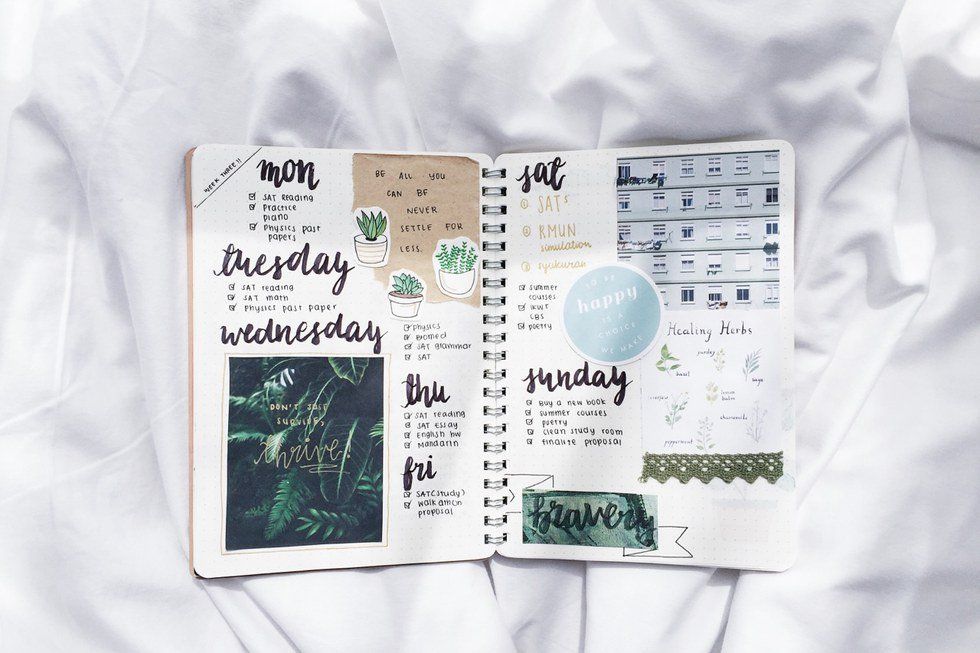 WEEK THREE !!
mon
SAT Reading
Practice
piano
Physics past
papers
BE ALL YOU
CAN BE
NEVER
SETTLE FOR
LESS.
tuesday
SAT reading
SAT math
Physics past paper
wednesday
Physics
Biomed
SAT grammar
SAT
DON'T JUST
SURVIVE,
thrive!
thu
SAT reading
SAT Essay
English hw
Mandarin
fri
SAT (study)
proposal
sat
① SATs
② RMUN
simulation
③ syukuran
summer
courses
CBS
poetry
TO BE
happy
IS A
CHOICE
WE MAKE
Healing Herbs
parsley
basil
sage
lemon
balm
chamomile
peppermint
sunday
Buy a new book
summer courses
poetry
clean study room
finalize proposal
bravery